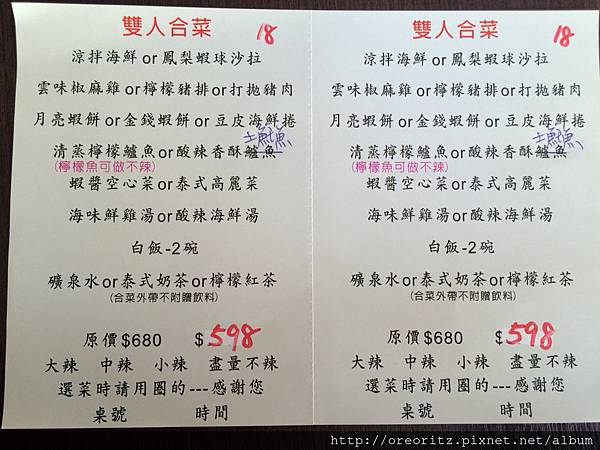 雙人合菜 18
涼拌海鮮or鳳梨蝦球沙拉
雲味椒麻雞or檸檬豬排or打拋豬肉
月亮蝦餅or金錢蝦餅or豆皮海鮮捲
土魠魚
清蒸檸檬鱸魚or酸辣香酥鱸魚
(檸檬魚可做不辣)
蝦醬空心菜or泰式高麗菜
海味鮮雞湯or酸辣海鮮湯
白飯-2碗
礦泉水or泰式奶茶or檸檬紅茶
(合菜外帶不附贈飲料)
原價$680 $598
大辣 中辣 小辣 盡量不辣
選菜時請用圈的---感謝您
桌號 時間
雙人合菜 18
涼拌海鮮or鳳梨蝦球沙拉
雲味椒麻雞or檸檬豬排or打拋豬肉
月亮蝦餅or金錢蝦餅or豆皮海鮮捲
土魠魚
清蒸檸檬鱸魚or酸辣香酥鱸魚
(檸檬魚可做不辣)
蝦醬空心菜or泰式高麗菜
海味鮮雞湯or酸辣海鮮湯
白飯-2碗
礦泉水or泰式奶茶or檸檬紅茶
(合菜外帶不附贈飲料)
原價$680 $598
大辣 中辣 小辣 盡量不辣
選菜時請用圈的---感謝您
桌號 時間
http://oreoritz.pixnet.net/album